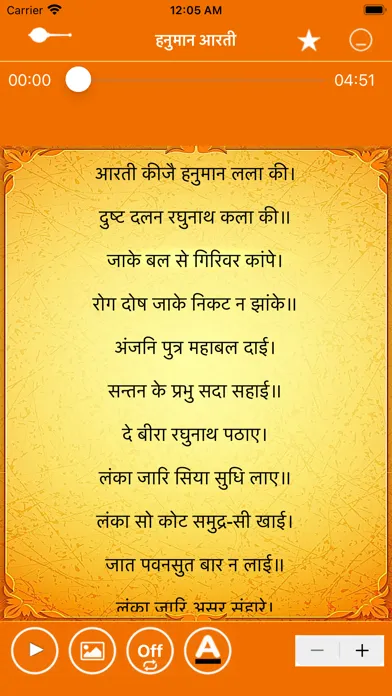 Carrier 12:05 AM
हनुमान आरती
00:00 04:51
आरती कीजै हनुमान लला की।
दुष्ट दलन रघुनाथ कला की॥
जाके बल से गिरिवर कांपे।
रोग दोष जाके निकट न झांके॥
अंजनि पुत्र महाबल दाई।
सन्तन के प्रभु सदा सहाई॥
दे बीरा रघुनाथ पठाए।
लंका जारि सिया सुधि लाए॥
लंका सो कोट समुद्र-सी खाई।
जात पवनसुत बार न लाई॥
लंका जारि असुर संहारे।
Off A − +